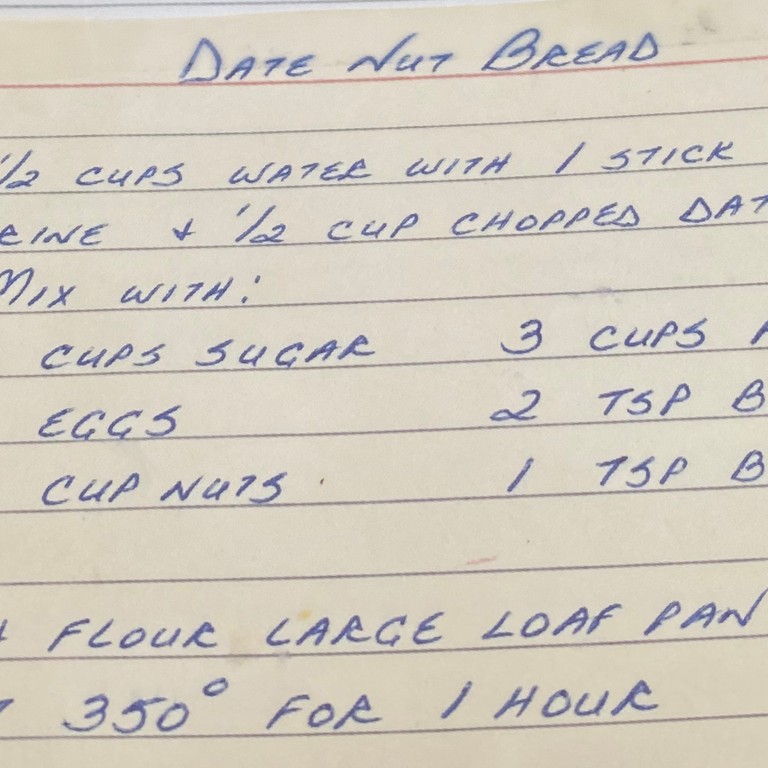 DATE NUT BREAD
1/2 CUPS WATER WITH 1 STICK
RINE & 1/2 CUP CHOPPED DAT
MIX WITH:
CUPS SUGAR 3 CUPS
EGGS 2 TSP B
CUP NUTS 1 TSP B
FLOUR LARGE LOAF PAN
350° FOR 1 HOUR